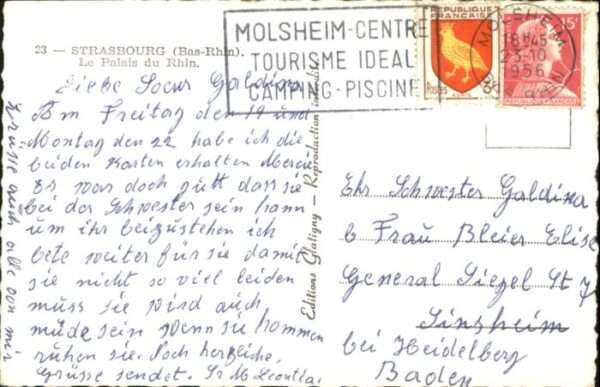 23 — STRASBOURG (Bas-Rhin).
Le Palais du Rhin.
MOLSHEIM-CENTRE
TOURISME IDEAL
CAMPING-PISCINE
REPUBLIQUE
FRANÇAISE
Postes
MOLSHEIM
18H45
23-10
1956
15F
REPUBLIQUE FRANÇAISE
Liebe Soeur Galdina
Am Freitag den 19 und
Montag den 22 habe ich die
beiden Karten erhalten Merci
Es war doch gutt dass sie
bei der Schwester sein kann
um ihr beizustehen ich
bete weiter für sie damit
sie nicht so viel leiden
muss sie wird auch
müde sein wenn sie kommen
ruhen sie. Noch herzliche
Grüsse sendet. Sr M Leontia.
Grüsse auch alle von mir
Editions Glatigny — Reproduction interdite
Ehr Schwester Galdina
b Frau Bleier Elise
General Siegel St 7
Sinsheim
bei Heidelberg
Baden